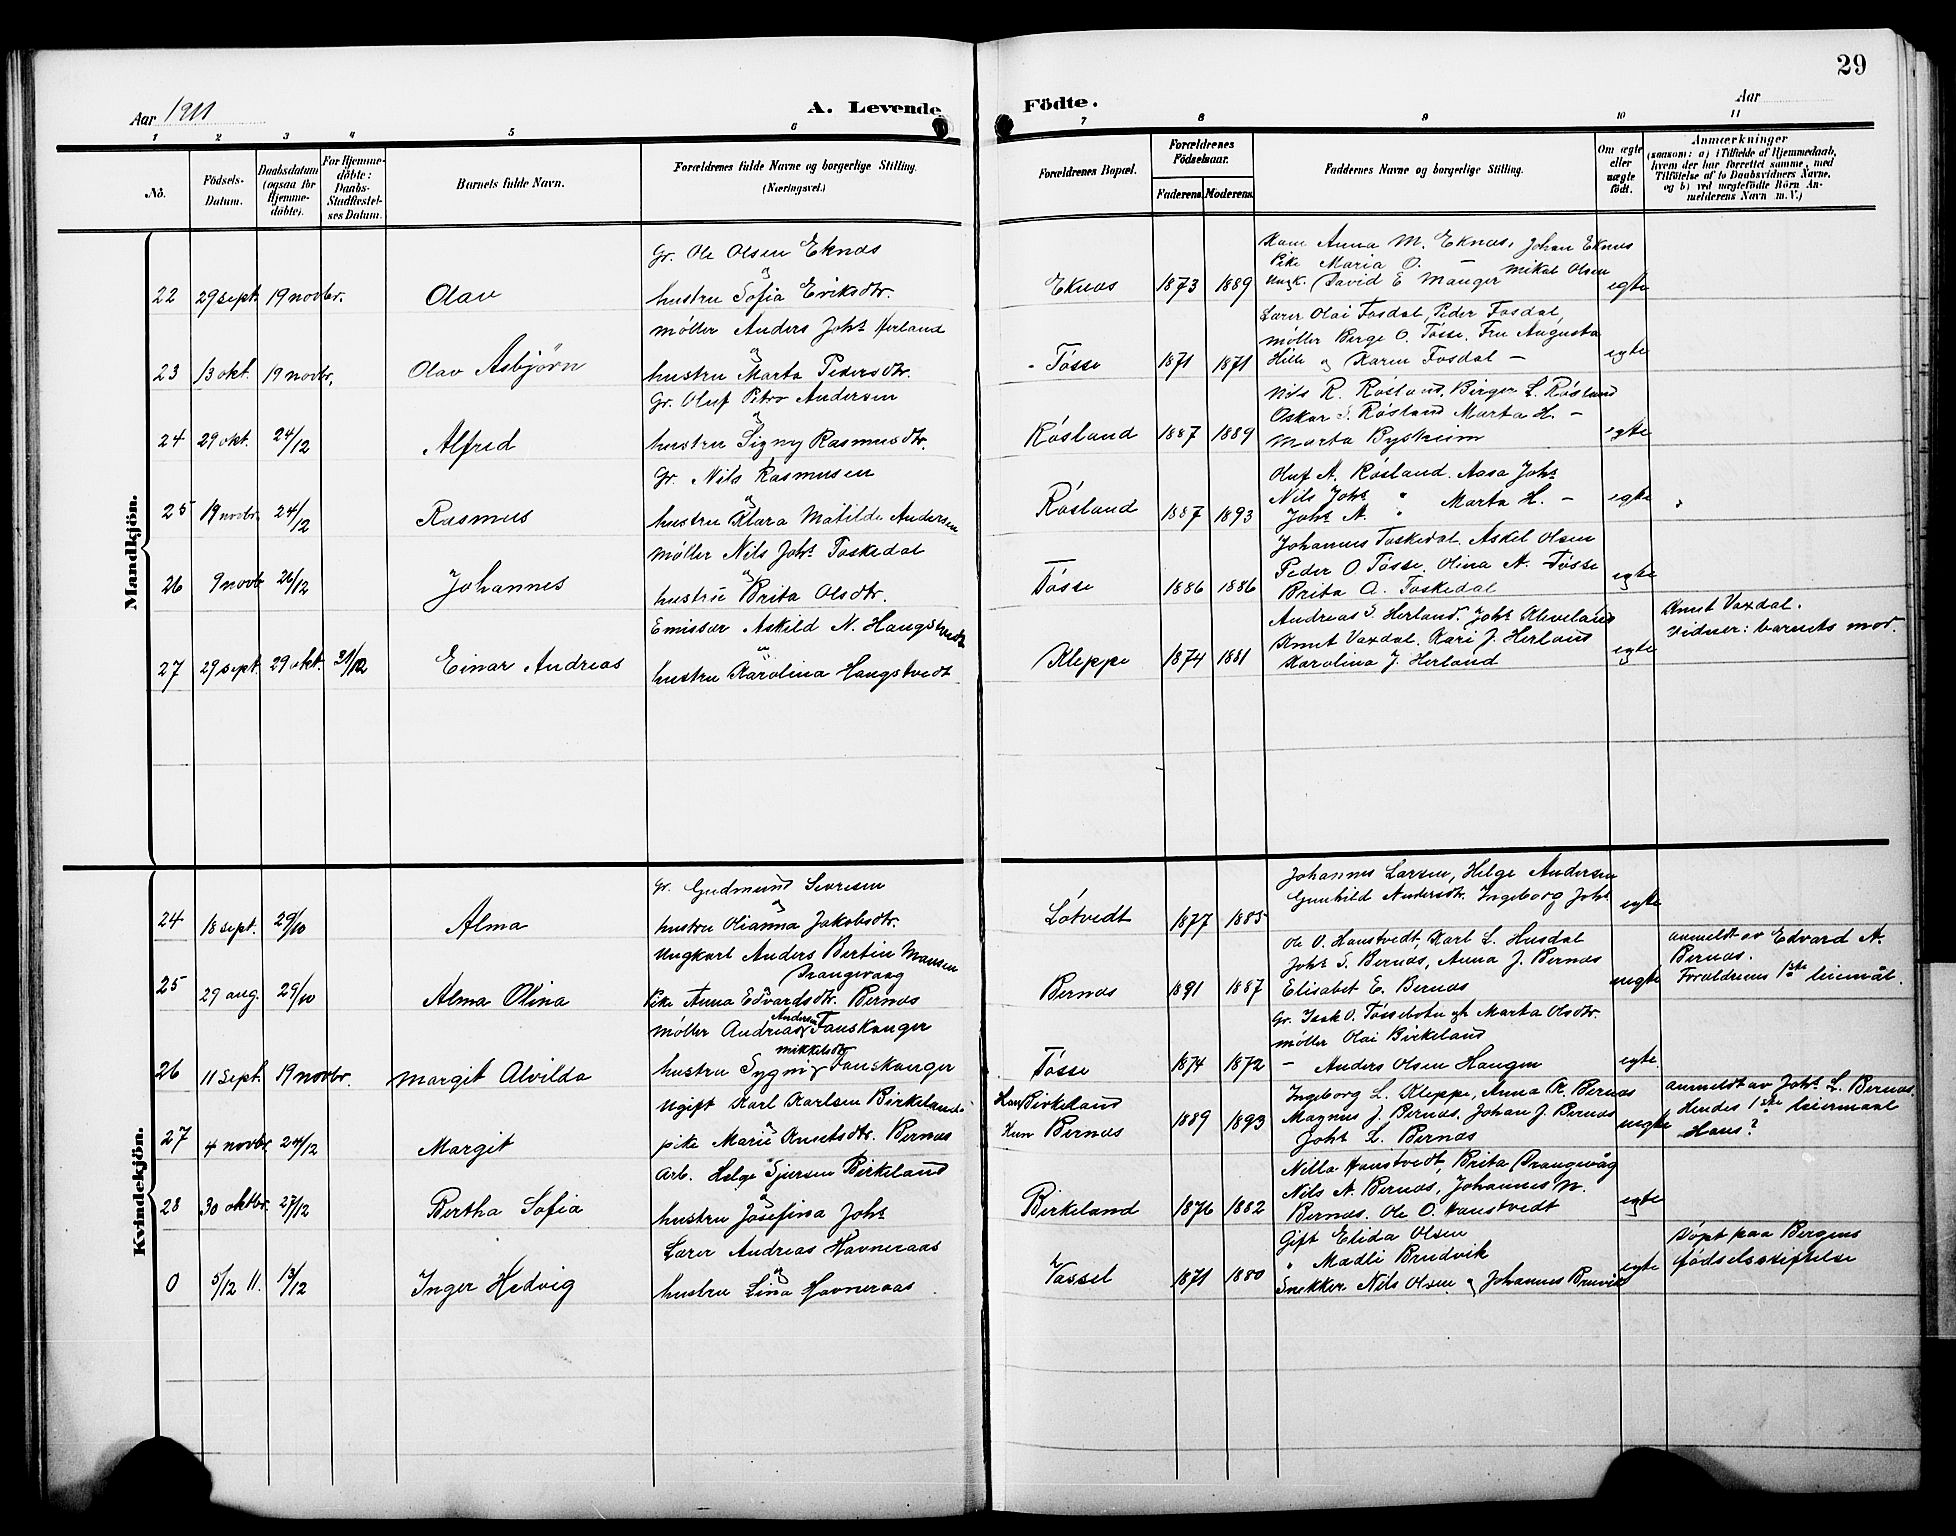 29
Aar 1911
A. Levende Födte.
Aar
1 2 3 4 5 6 7 8 9 10 11
No.
Födsels-Datum.
Daabsdatum (ogsaa for Hjemme-döbte).
For Hjemme-döbte: Daabs-Stadfæstel-ses Datum.
Barnets fulde Navn.
Forældrenes fulde Navne og borgerlige Stilling.
(Næringsvei.)
Forældrenes Bopæl.
Forældrenes Födselsaar.
Faderens. Moderens.
Faddernes Navne og borgerlige Stilling.
Om ægte eller uægte födt.
Anmærkninger
(saasom: a) i Tilfælde af Hjemmedaab, hvem der har forrettet samme, med Tilföielse af to Daabsvidners Navne, og b) ved uægtefödte Börn An-melderens Navn m. V.)
Mandkjön.
22 29 sept. 19 novbr. Olav
Gr. Ole Olsen Eknæs
og
hustru Sofia Eriksdtr.
Eknæs 1873 1889
Kone Anna M. Eknæs, Johan Eknæs
Pike Maria O. — Mikal Olsen
Ungk. David E Manger
egte
23 13 okt. 19 novbr. Olav Asbjörn
Møller Anders Johs Herland
og
hustru Marta Pedersdtr.
Tøsse 1871 1871
Lærer Olai Fosdal, Peder Fosdal,
møller Berge O. Tøsse. Fru Augusta
Hille og Karen Fosdal —
egte
24 29 okt. 24/12 Alfred
Gr. Oluf Petro Andersen
og
hustru Signy Rasmusdtr.
Røsland 1887 1889
Nils R. Røsland, Birger L. Røsland
Oskar S. Røsland Marta H. —
Marta Byskeim
egte
25 19 novbr. 24/12 Rasmus
Gr. Nils Rasmusen
og
hustru Klara Matilde Andersen
Røsland 1887 1893
Oluf A. Røsland. Aasa Johs
Nils Johs " Marta H. —
Johs A. "
egte
26 9 novb 26/12 Johannes
Møller Nils Johs Toskedal
og
hustru Brita Olsdtr.
Tøsse 1886 1886
Johannes Toskedal. Askel Olsen
Peder O Tøsse. Olina A. Tøsse
Brita A. Toskedal
egte
27 29 sept. 29 okt. 31/12 Einar Andreas
Emissær Askild N. Haugstvedt
og
hustru Karolina Haugstvedt
Kleppe 1874 1881
Andreas S. Herland. Johs Kleveland
Knut Vaxdal. Kari J. Herland
Karolina J. Herland
egte
Knut Vaxdal.
Vidner: barnets mor.
Kvindekjön.
24 18 sept. 29/10 Alma
Gr. Gudmund Sevresen
og
hustru Olianna Jakobsdtr.
Løtvedt 1877 1885
Johannes Larsen, Helge Andersen
Gunhild Andersdtr. Ingeborg Johs
egte
25 29 aug. 29/10 Alma Olina
Ungkarl Anders Bertin Monsen
Drangevaag
Pike Anna Edvardsdtr. Bernæs
Bernæs 1891 1887
Ole O. Hanstvedt, Karl L. Husdal
Johs S. Bernæs, Anna J. Bernæs
Elisabet E. Bernæs
uegte
anmeldt av Edvard A.
Bernæs.
Foreldrenes 1ste leiemål.
26 11 sept. 19 novbr. Margit Alvilda
Møller Andreas Andersen Fauskanger
hustru Sygni Mikkelsdtr Fauskanger
Tøsse 1874 1872
Gr. Isak O. Tøssebotn og Marta Olsdtr.
møller Olai Birkeland
— Anders Olsen Haugen
egte
27 4 novbr. 24/12 Margit
Ugift Karl Karlsen Birkeland
og
pike Marie Knutsdtr. Bernæs
Han Birkeland
Hun Bernæs
1889 1893
Ingeborg L. Kleppe, Anna K. Bernæs
Magnus J. Bernæs. Johan J Bernæs
Johs L. Bernæs
uegte
anmeldt av Johs L. Bernæs.
Hendes 1ste leiermaal
Hans?
28 30 oktbr. 27/12 Bertha Sofia
Arb. Helge Sjursen Birkeland
og
hustru Josefina Johs
Birkeland 1876 1882
Nilla Hanstvedt, Brita Drangevåg
Nils A. Bernæs, Johannes N.
Bernæs. Ole O. Hanstvedt
egte
0 5/12 11. 13/12 Inger Hedvig
Lærer Andreas Havneraas
og
hustru Lina Havneraas
Vassel 1871 1880
Gift Elida Olsen
" Madli Brudvik
Snekker Nils Olsen og Johannes Bruvik
egte
Døpt paa Bergens
fødselsstiftelse